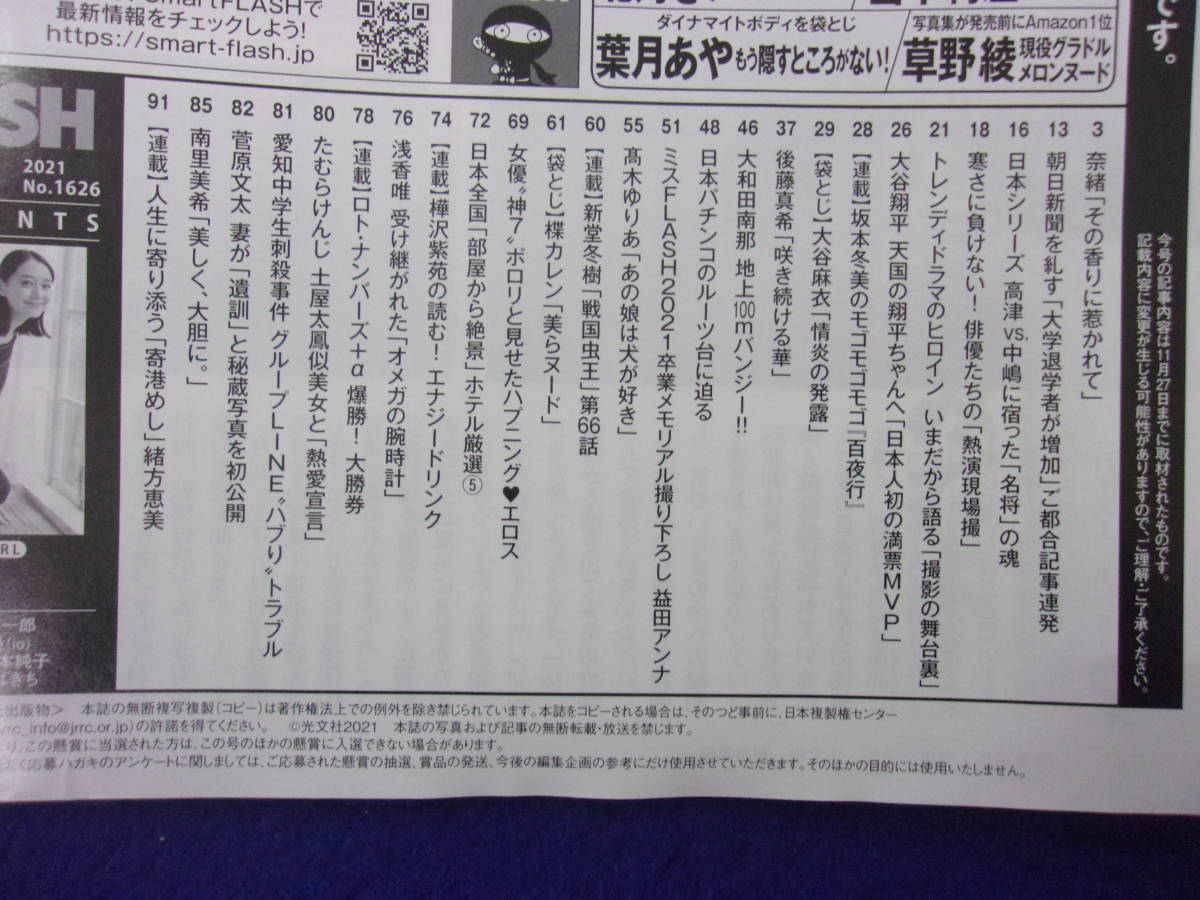 最新情報をチェックしよう!
https://smart-flash.jp
ダイナマイトボディを袋とじ
葉月あや もう隠すところがない!
写真集が発売前にAmazon1位
草野綾 現役グラドル
メロンヌード
です。
SH
2021
No.1626
NTS
RL
3 奈緒「その香りに惹かれて」
13 朝日新聞を糺す「大学退学者が増加」ご都合記事連発
16 日本シリーズ 高津vs.中嶋に宿った「名将」の魂
18 寒さに負けない! 俳優たちの「熱演現場撮」
21 トレンディドラマのヒロイン いまだから語る「撮影の舞台裏」
26 大谷翔平 天国の翔平ちゃんへ「日本人初の満票MVP」
28 【連載】坂本冬美のモゴモゴモゴ『百夜行』
29 【袋とじ】大谷麻衣「情炎の発露」
37 後藤真希「咲き続ける華」
46 大和田南那 地上100mバンジー!!
48 日本パチンコのルーツ台に迫る
51 ミスFLASH2021卒業メモリアル撮り下ろし 益田アンナ
55 髙木ゆりあ「あの娘は犬が好き」
60 【連載】新堂冬樹「戦国虫王」第66話
61 【袋とじ】楪カレン「美らヌード」
69 女優〝神7〟ポロリと見せたハプニング♥エロス
72 日本全国「部屋から絶景」ホテル厳選⑤
74 【連載】樺沢紫苑の読む! エナジードリンク
76 浅香唯 受け継がれた「オメガの腕時計」
78 【連載】ロト・ナンバーズ+α 爆勝! 大勝券
80 たむらけんじ 土屋太鳳似美女と「熱愛宣言」
81 愛知中学生刺殺事件 グループLINE〝ハブり〟トラブル
82 菅原文太 妻が「遺訓」と秘蔵写真を初公開
85 南里美希「美しく、大胆に。」
91 【連載】人生に寄り添う「寄港めし」緒方恵美
今号の記事内容は11月27日までに取材されたものです。
記載内容に変更が生じる可能性がありますので、ご理解・ご了承ください。
一郎
(io)
本純子
きち
出版物> 本誌の無断複写複製(コピー)は著作権法上での例外を除き禁じられています。本誌をコピーされる場合は、そのつど事前に、日本複製権センター
jrrc_info@jrrc.or.jp)の許諾を得てください。 ©光文社2021 本誌の写真および記事の無断転載・放送を禁じます。
り、この懸賞に当選された方は、この号のほかの懸賞に入選できない場合があります。
だく応募ハガキのアンケートに関しましては、ご応募された懸賞の抽選、賞品の発送、今後の編集企画の参考にだけ使用させていただきます。そのほかの目的には使用いたしません。